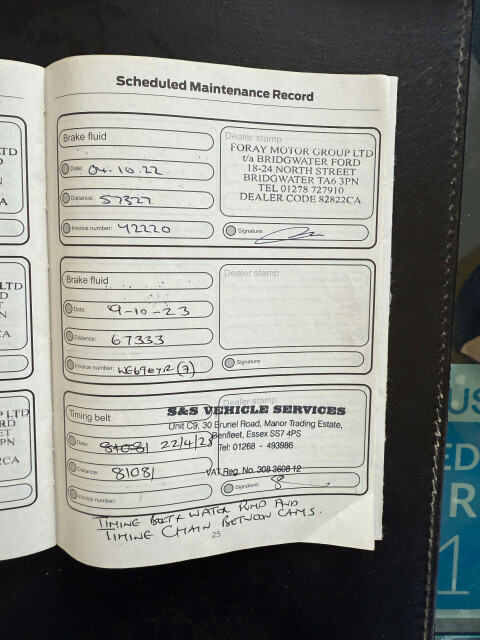 Scheduled Maintenance Record
Brake fluid
Date: 04.10.22
Distance: 57327
Invoice number: 42220
Dealer stamp
FORAY MOTOR GROUP LTD
t/a BRIDGWATER FORD
18-24 NORTH STREET
BRIDGWATER TA6 3PN
TEL 01278 727910
DEALER CODE 82822CA
Signature:
Brake fluid
Date: 9-10-23
Distance: 67333
Invoice number: WE69
Dealer stamp
Signature:
Timing belt
Date: 81081 22/4/25
Distance: 81081
Invoice number:
Dealer stamp
S&S VEHICLE SERVICES
Unit C9, 30 Brunel Road, Manor Trading Estate,
Benfleet, Essex SS7 4PS
Tel: 01268 - 493986
VAT Reg. No. 308 3608 12
Signature:
TIMING BELT + WATER PUMP AND
TIMING CHAIN BETWEEN CAMS.
25
LTD
PN
CA
LTD
CA
P LTD
RD
ET
PN
2CA
US
ED
R
1